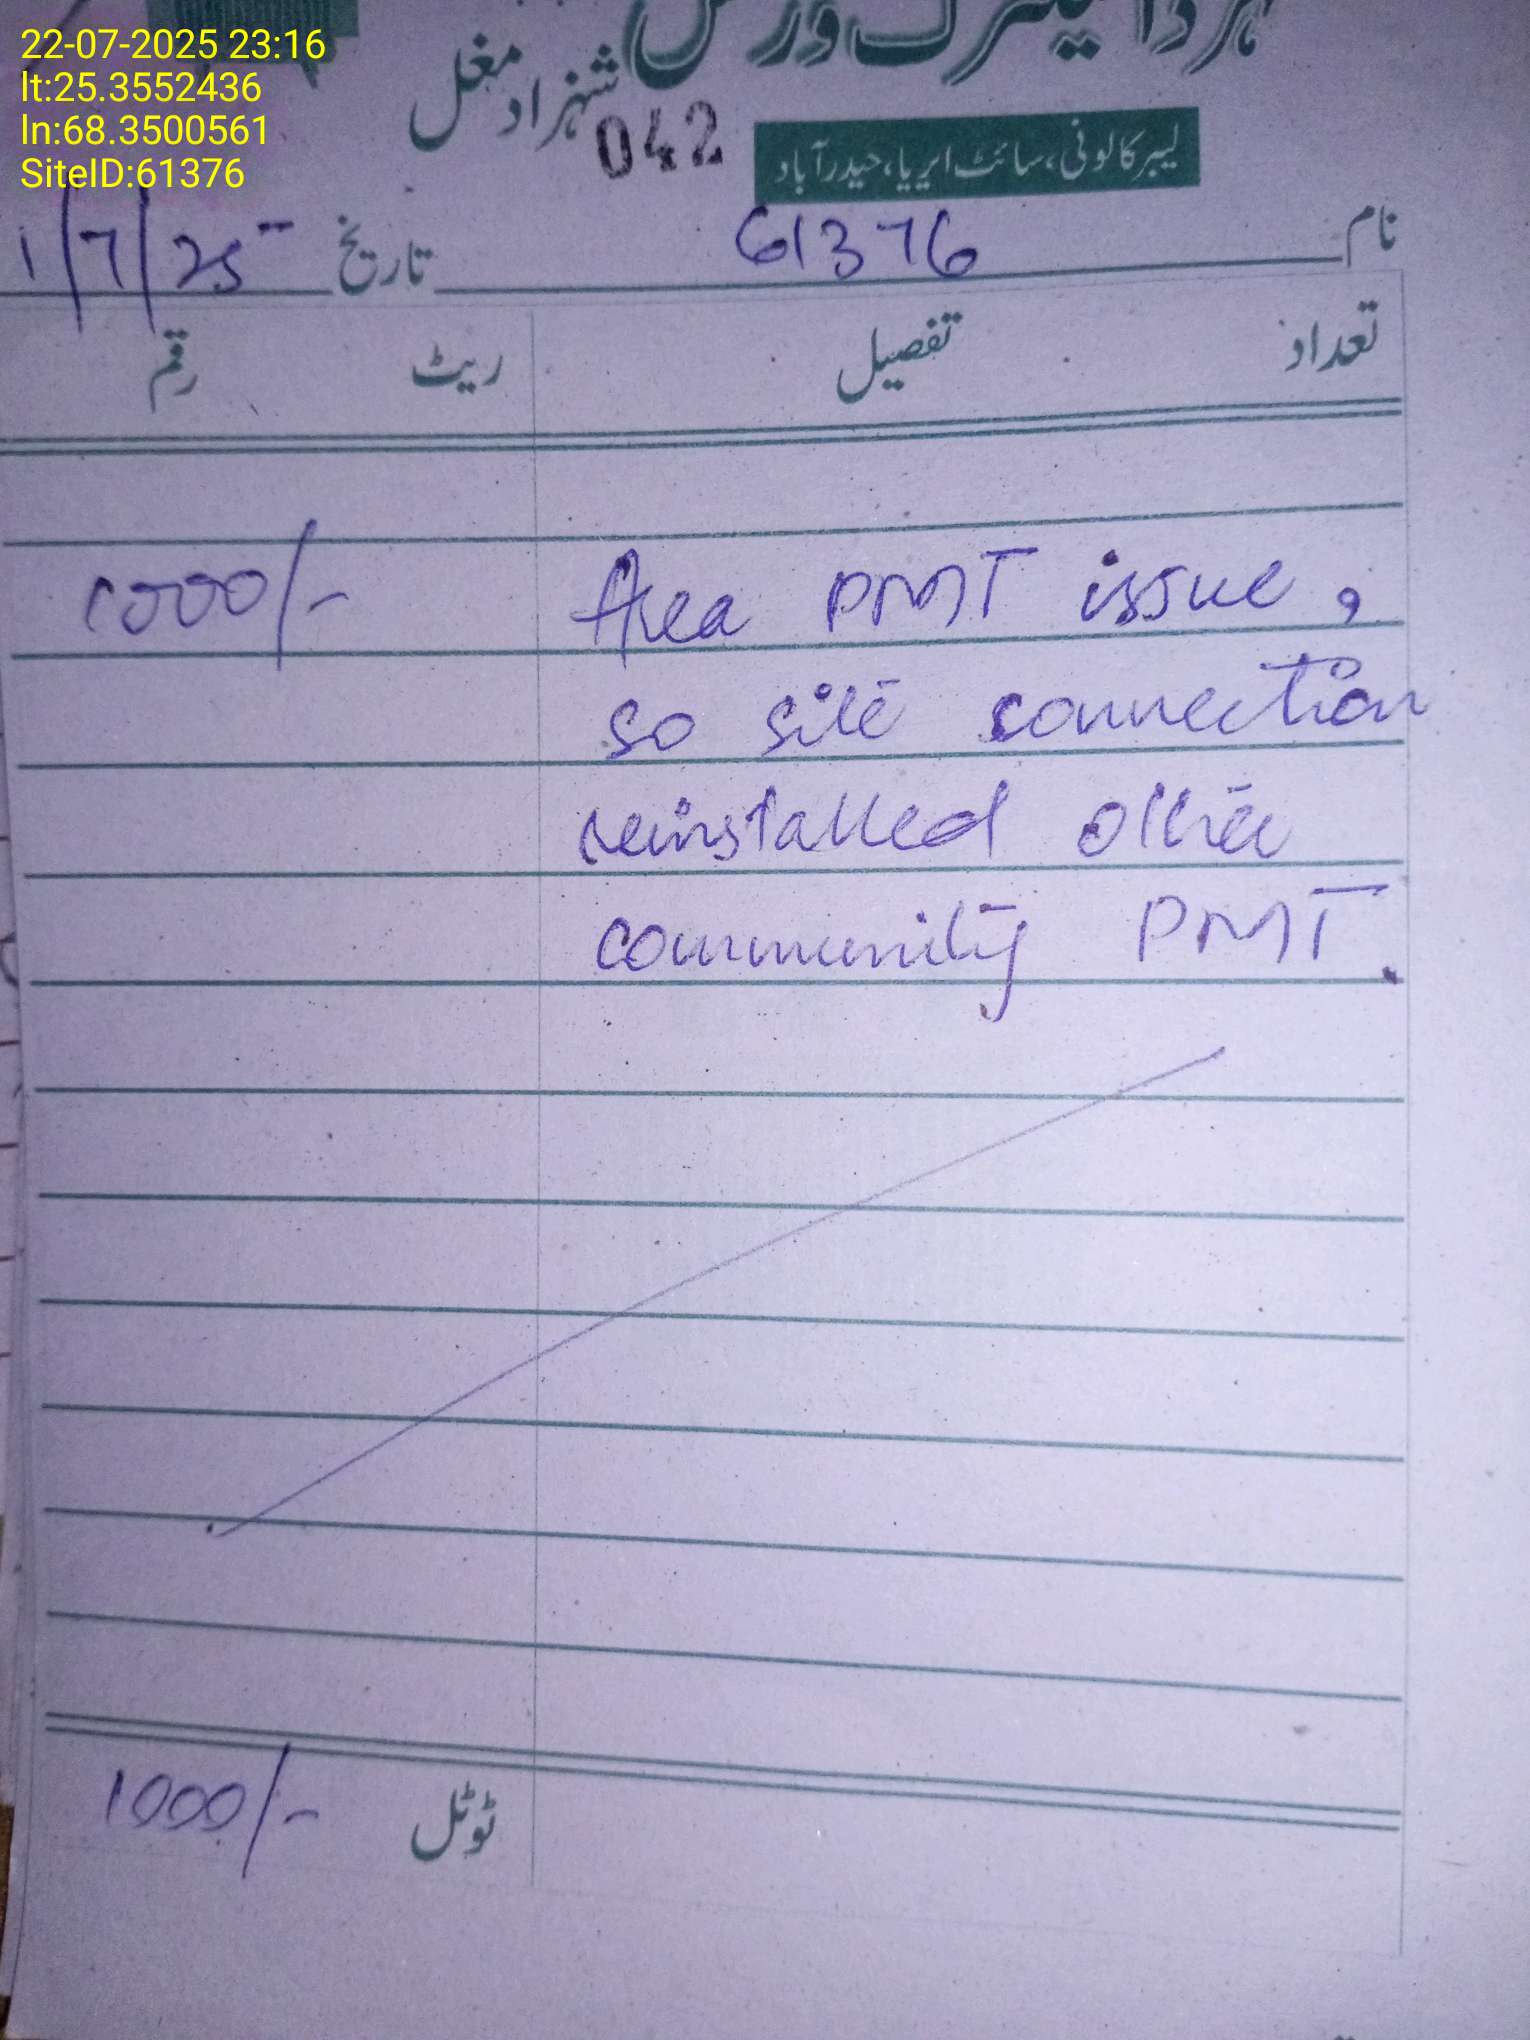 22-07-2025 23:16
lt:25.3552436
ln:68.3500561
SiteID:61376
الیکٹرک ورکس
شہزاد مغل
042
لیبر کالونی، سائٹ ایریا، حیدرآباد
نام 61376 تاریخ 1/7/25
تعداد تفصیل ریٹ رقم
Area PMT issue, 1000/-
so site connection
reinstalled other
community PMT.
ٹوٹل 1000/-